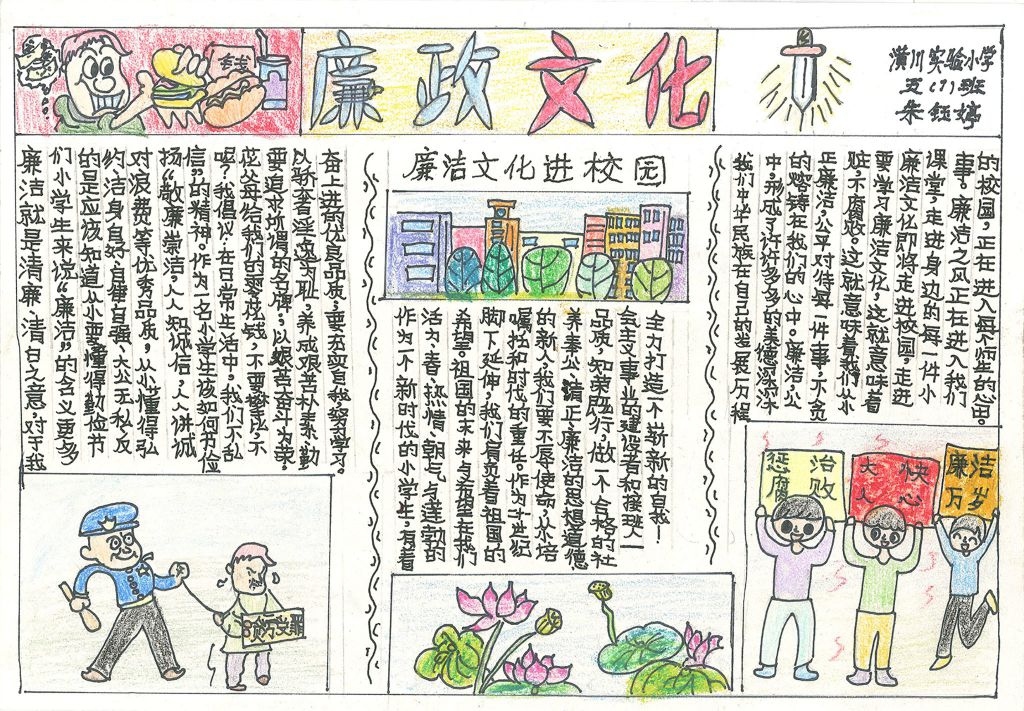 钱
廉政文化
潢川实验小学
五(9)班
朱钰婷
廉洁就是清廉、清白之意,对于我
们小学生来说,“廉洁”的含义更多
的是应该知道从小要懂得勤俭节
约、洁身自好、自强、大公无私、反
对浪费等优秀品质,从小懂得弘
扬“敬廉崇洁,人人知诚信,人人讲诚
信”的精神。作为一名小学生该如何节俭
呢?我倡议:在日常生活中,我们不乱
花父母给我们的零花钱,不要攀比,不
要追求所谓的名牌;以艰苦奋斗为荣。
以骄奢淫逸为耻;养成艰苦朴素、勤
奋上进的优良品质;要充实自我,努力学习。
廉洁文化进校园
作为一个新时代的小学生,有着
活力、青春、热情、朝气与蓬勃的
希望。祖国的未来与希望在我们
脚下延伸,我们肩负着祖国的
嘱托和时代的重任。作为二十一世纪
的新人,我们要不辱使命,从小培
养秉公、清正、廉洁的思想道德
品质,知荣即行,做一个合格的社
会主义事业的建设者和接班人一
全力打造一个崭新的自我!
我们中华民族在自己的发展历程
中,形成了许许多多的美德深深
的熔铸在我们的心中。廉洁,公
正廉洁,公平对待每一件事,不贪
赃,不腐败。这就意味着我们从小
要学习廉洁文化,这就意味着
廉洁文化即将走进校园,走进
课堂,走进身边的每一件小
事。廉洁之风正在进入我们
的校园,正在进入每个师生的心田。
惩治
腐败
大快
人心
廉洁
万岁